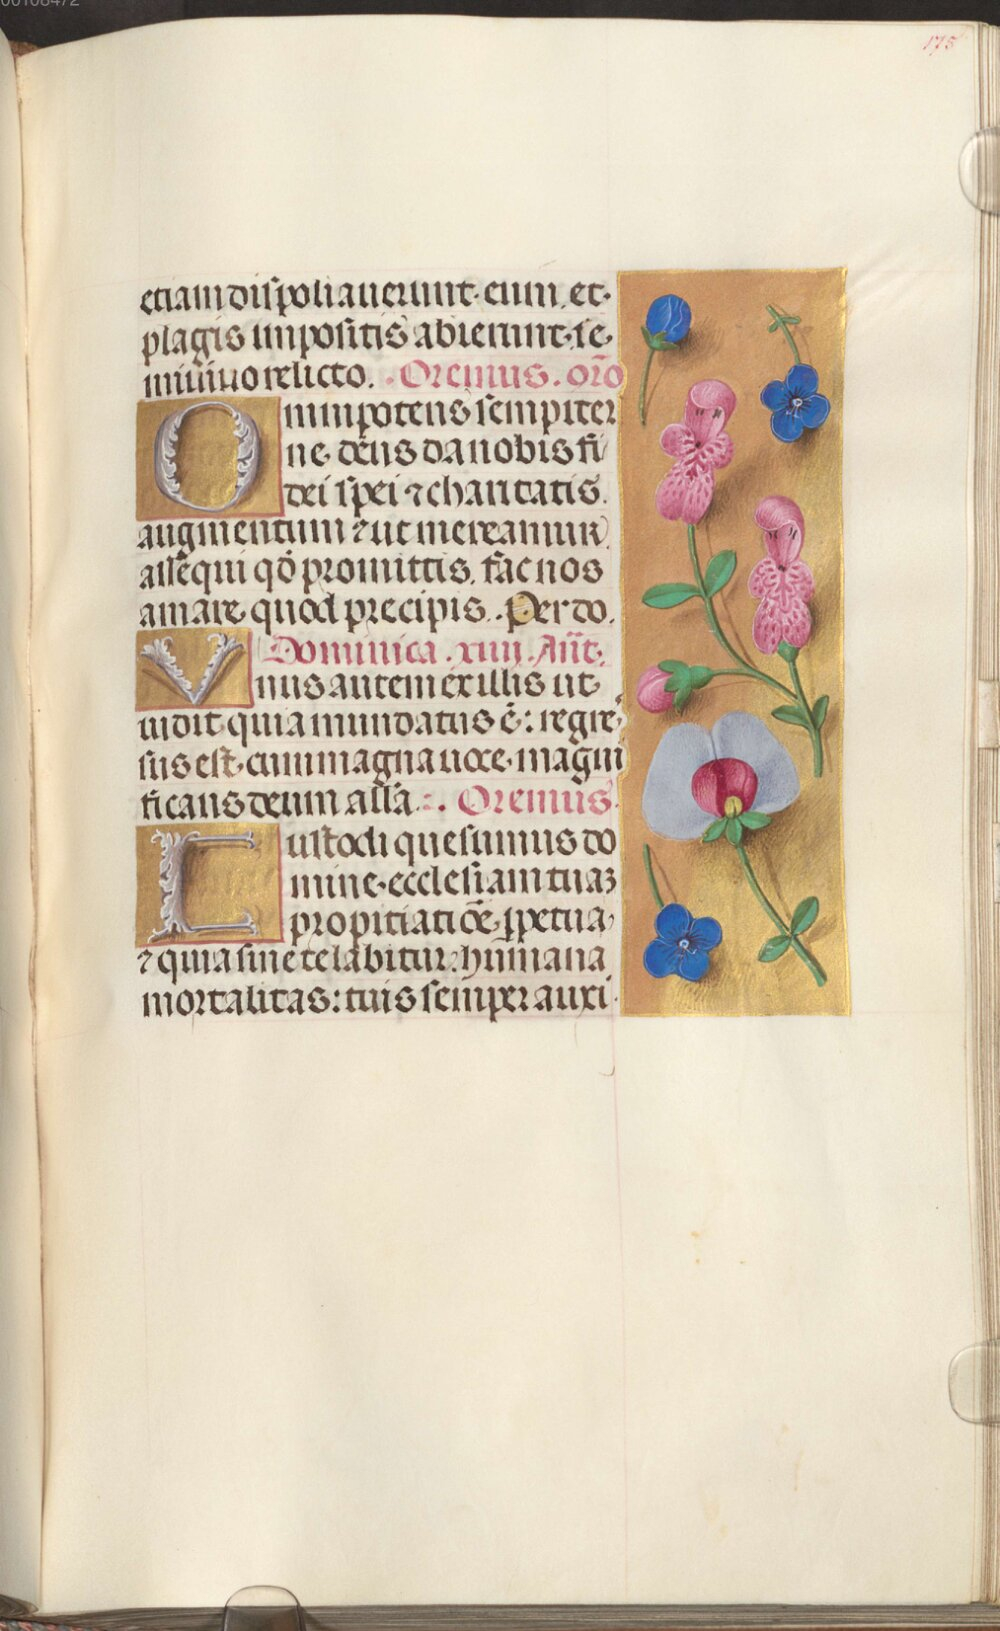 00108472
175
etiam dispoliauerunt eum et
plagis impositis abierunt se
miuiuo relicto. Oremus. orõ
Omnipotens sempiter
ne deus da nobis fi
dei spei ⁊ charitatis
augmentum ⁊ ut mereamur
assequi qđ promittis fac nos
amare quod precipis. Per do.
Dominica .xiiii. Añt.
Vnus autem ex illis ut
uidit quia mundatus ē: regres
sus est cum magna uoce magni
ficans deum alĺa. Oremus.
Custodi quesumus do
mine ecclesiam tuaꝫ
propitiatiõe ꝑpetua
⁊ quia sine te labitur humana
mortalitas: tuis semper auxi